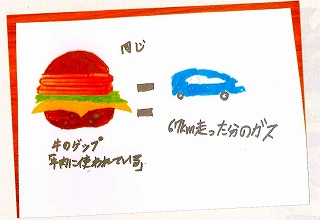 同じ
牛のゲップ
「牛肉に使われている」
67km走った分のガス